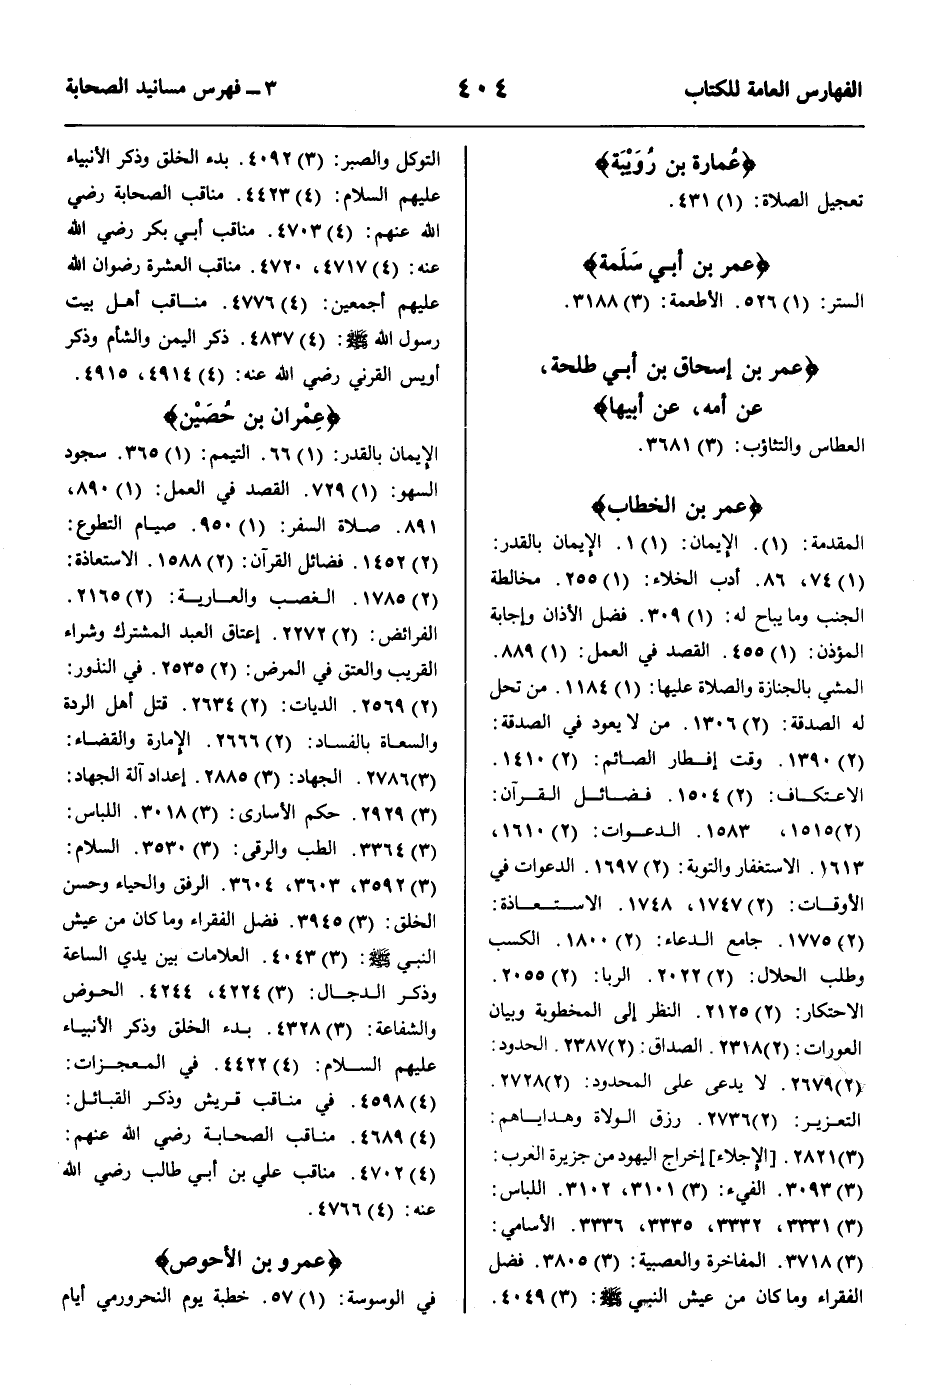 الفهارس العامة للكتاب
٤٠٤
٣ ـ فهرس مسانيد الصحابة
﴿عُمارة بن رُوَيْبَة﴾
تعجيل الصلاة: (١) ٤٣١.
﴿عمر بن أبي سَلَمة﴾
الستر: (١) ٥٢٦. الأطعمة: (٣) ٣١٨٨.
﴿عمر بن إسحاق بن أبي طلحة،
عن أمه، عن أبيها﴾
العطاس والتثاؤب: (٣) ٣٦٨١.
﴿عمر بن الخطاب﴾
المقدمة: (١). الإيمان: (١) ١. الإيمان بالقدر:
(١) ٧٤، ٨٦. أدب الخلاء: (١) ٢٥٥. مخالطة
الجنب وما يباح له: (١) ٣٠٩. فضل الأذان وإجابة
المؤذن: (١) ٤٥٥. القصد في العمل: (١) ٨٨٩.
المشي بالجنازة والصلاة عليها: (١) ١١٨٤. من تحل
له الصدقة: (٢) ١٣٠٦. من لا يعود في الصدقة:
(٢) ١٣٩٠. وقت إفطار الصائم: (٢) ١٤١٠.
الاعتكاف: (٢) ١٥٠٤. فضائل القرآن:
(٢) ١٥١٥، ١٥٨٣. الدعوات: (٢) ١٦١٠،
١٦١٣. الاستغفار والتوبة: (٢) ١٦٩٧. الدعوات في
الأوقات: (٢) ١٧٤٧، ١٧٤٨. الاستعاذة:
(٢) ١٧٧٥. جامع الدعاء: (٢) ١٨٠٠. الكسب
وطلب الحلال: (٢) ٢٠٢٢. الربا: (٢) ٢٠٥٥.
الاحتكار: (٢) ٢١٢٥. النظر إلى المخطوبة وبيان
العورات: (٢) ٢٣١٨. الصداق: (٢) ٢٣٨٧. الحدود:
(٢) ٢٦٧٩. لا يدعى على المحدود: (٢) ٢٧٢٨.
التعزير: (٢) ٢٧٣٦. رزق الولاة وهداياهم:
(٣) ٢٨٢١. [الإجلاء] إخراج اليهود من جزيرة العرب:
(٣) ٣٠٩٣. الفيء: (٣) ٣١٠١، ٣١٠٢. اللباس:
(٣) ٣٣٣١، ٣٣٣٢، ٣٣٣٥، ٣٣٣٦. الأسامي:
(٣) ٣٧١٨. المفاخرة والعصبية: (٣) ٣٨٠٥. فضل
الفقراء وما كان من عيش النبي ﷺ: (٣) ٤٠٤٩.
التوكل والصبر: (٣) ٤٠٩٢. بدء الخلق وذكر الأنبياء
عليهم السلام: (٤) ٤٤٢٣. مناقب الصحابة رضي
الله عنهم: (٤) ٤٧٠٣. مناقب أبي بكر رضي الله
عنه: (٤) ٤٧١٧، ٤٧٢٠. مناقب العشرة رضوان الله
عليهم أجمعين: (٤) ٤٧٧٦. مناقب أهل بيت
رسول الله ﷺ: (٤) ٤٨٣٧. ذكر اليمن والشأم وذكر
أويس القرني رضي الله عنه: (٤) ٤٩١٤، ٤٩١٥.
﴿عِمْران بن حُصَيْن﴾
الإيمان بالقدر: (١) ٦٦. التيمم: (١) ٣٦٥. سجود
السهو: (١) ٧٢٩. القصد في العمل: (١) ٨٩٠،
٨٩١. صلاة السفر: (١) ٩٥٠. صيام التطوع:
(٢) ١٤٥٢. فضائل القرآن: (٢) ١٥٨٨. الاستعاذة:
(٢) ١٧٨٥. الغصب والعارية: (٢) ٢١٦٥.
الفرائض: (٢) ٢٢٧٢. إعتاق العبد المشترك وشراء
القريب والعتق في المرض: (٢) ٢٥٣٥. في النذور:
(٢) ٢٥٦٩. الديات: (٢) ٢٦٣٤. قتل أهل الردة
والسعاة بالفساد: (٢) ٢٦٦٦. الإمارة والقضاء:
(٣) ٢٧٨٦. الجهاد: (٣) ٢٨٨٥. إعداد آلة الجهاد:
(٣) ٢٩٢٩. حكم الأسارى: (٣) ٣٠١٨. اللباس:
(٣) ٣٣٦٤. الطب والرقى: (٣) ٣٥٣٠. السلام:
(٣) ٣٥٩٢، ٣٦٠٣، ٣٦٠٤. الرفق والحياء وحسن
الخلق: (٣) ٣٩٤٥. فضل الفقراء وما كان من عيش
النبي ﷺ: (٣) ٤٠٤٣. العلامات بين يدي الساعة
وذكر الدجال: (٣) ٤٢٢٤، ٤٢٤٤. الحوض
والشفاعة: (٣) ٤٣٢٨. بدء الخلق وذكر الأنبياء
عليهم السلام: (٤) ٤٤٢٢. في المعجزات:
(٤) ٤٥٩٨. في مناقب قريش وذكر القبائل:
(٤) ٤٦٨٩. مناقب الصحابة رضي الله عنهم:
(٤) ٤٧٠٢. مناقب علي بن أبي طالب رضي الله
عنه: (٤) ٤٧٦٦.
﴿عمرو بن الأحوص﴾
في الوسوسة: (١) ٥٧. خطبة يوم النحرورمي أيام